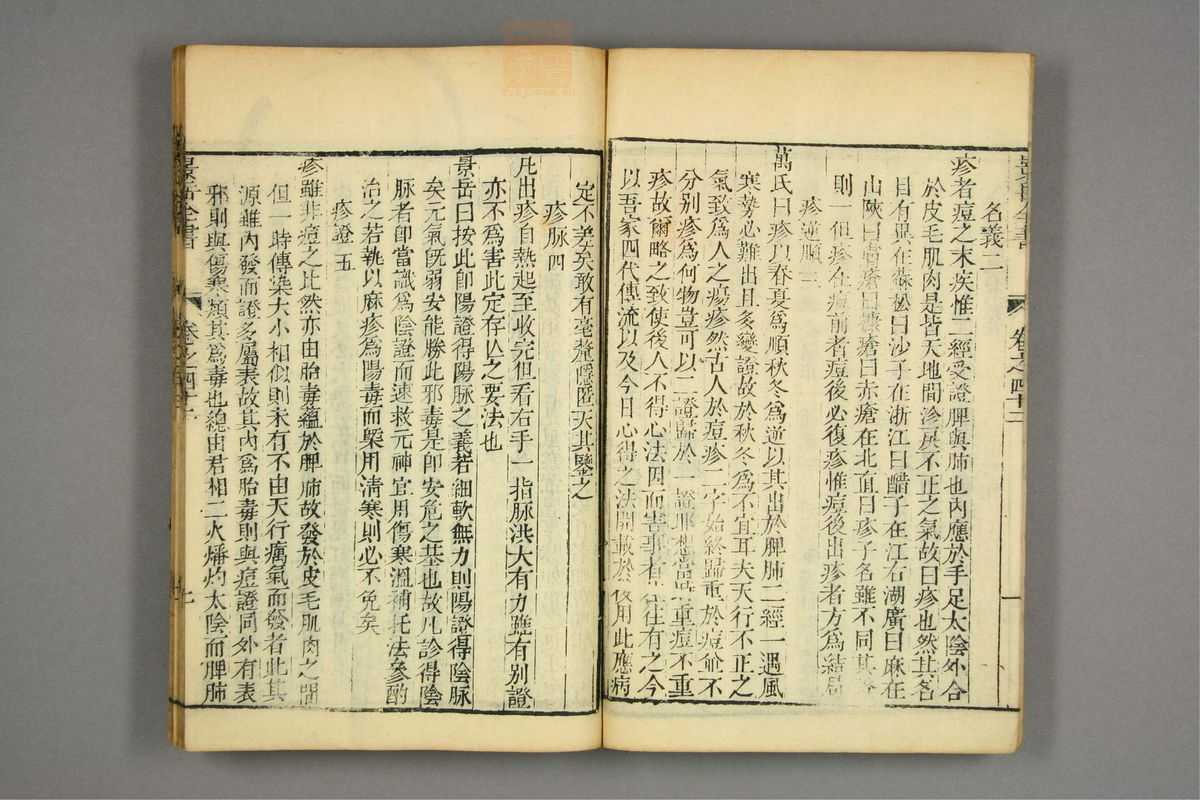 名義二
疹者痘之末疾惟二經受證脾與肺也內應於手足太陰外合
於皮毛肌肉是皆天地間沴戾不正之氣故曰疹也然其名
目有異在蘇松曰沙子在浙江曰醋子在江右湖廣曰麻在
山陝曰膚瘡曰糠瘡曰赤瘡在北直曰疹子名雖不同其
則一但疹在痘前者痘後必復疹惟痘後出疹者方為結局
疹逆順三
萬氏曰疹以春夏為順秋冬為逆以其出於脾肺二經一遇風
寒勢必難出且多變證故於秋冬為不宜耳夫天行不正之
氣致為人之瘍疹然古人於痘疹二字始終歸重於痘並不
分別疹為何物豈可以二證歸於一證耶想當時重痘不重
疹故爾略之致使後人不得心法因而害事者往往有之今
以吾家四代傳流以及今日心得之法開載於後用此應病
定不差矣敢有毫釐隱匿天其鑒之
疹脉四
凡出疹自熱起至收完但看右手一指脉洪大有力雖有別證
亦不為害此定存亾之要法也
景岳曰按此即陽證得陽脉之義若細軟無力則陽證得陰脉
矣元氣旣弱安能勝此邪毒是即安危之基也故凡診得陰
脉者即當識為陰證而速救元神宜用傷寒溫補托法參酌
治之若執以麻疹為陽毒而槩用清寒則必不免矣
疹證五
疹雖非痘之比然亦由胎毒蘊於脾肺故發於皮毛肌肉之間
但一時傳染大小相似則未有不由天行癘氣而發者此其
源雖內發而證多屬表故其內為胎毒則與痘證同外有表
邪則與傷寒類其為毒也總由君相二火燔灼太陰而脾肺
景岳全書
卷之四十三
七